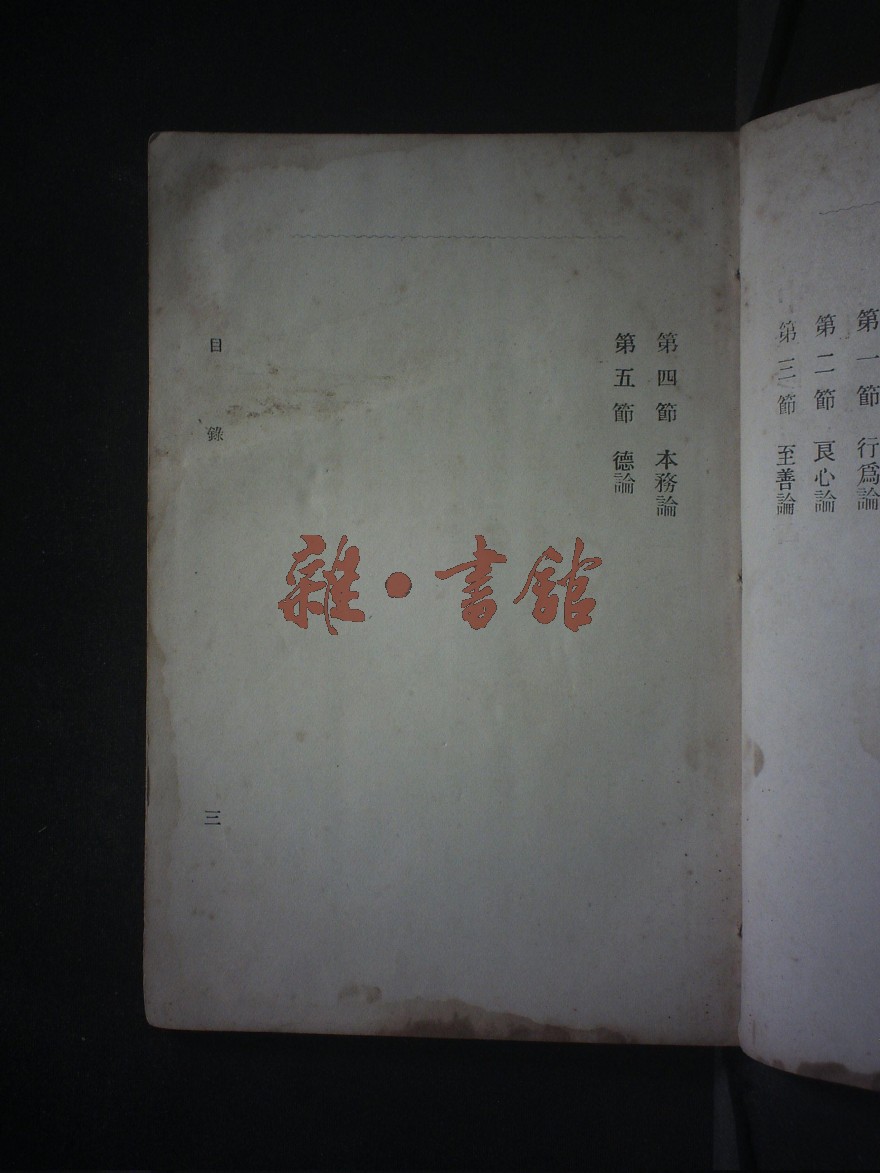 第一節 行爲論
第二節 良心論
第三節 至善論
第四節 本務論
第五節 德論
目錄
三
雜·書館